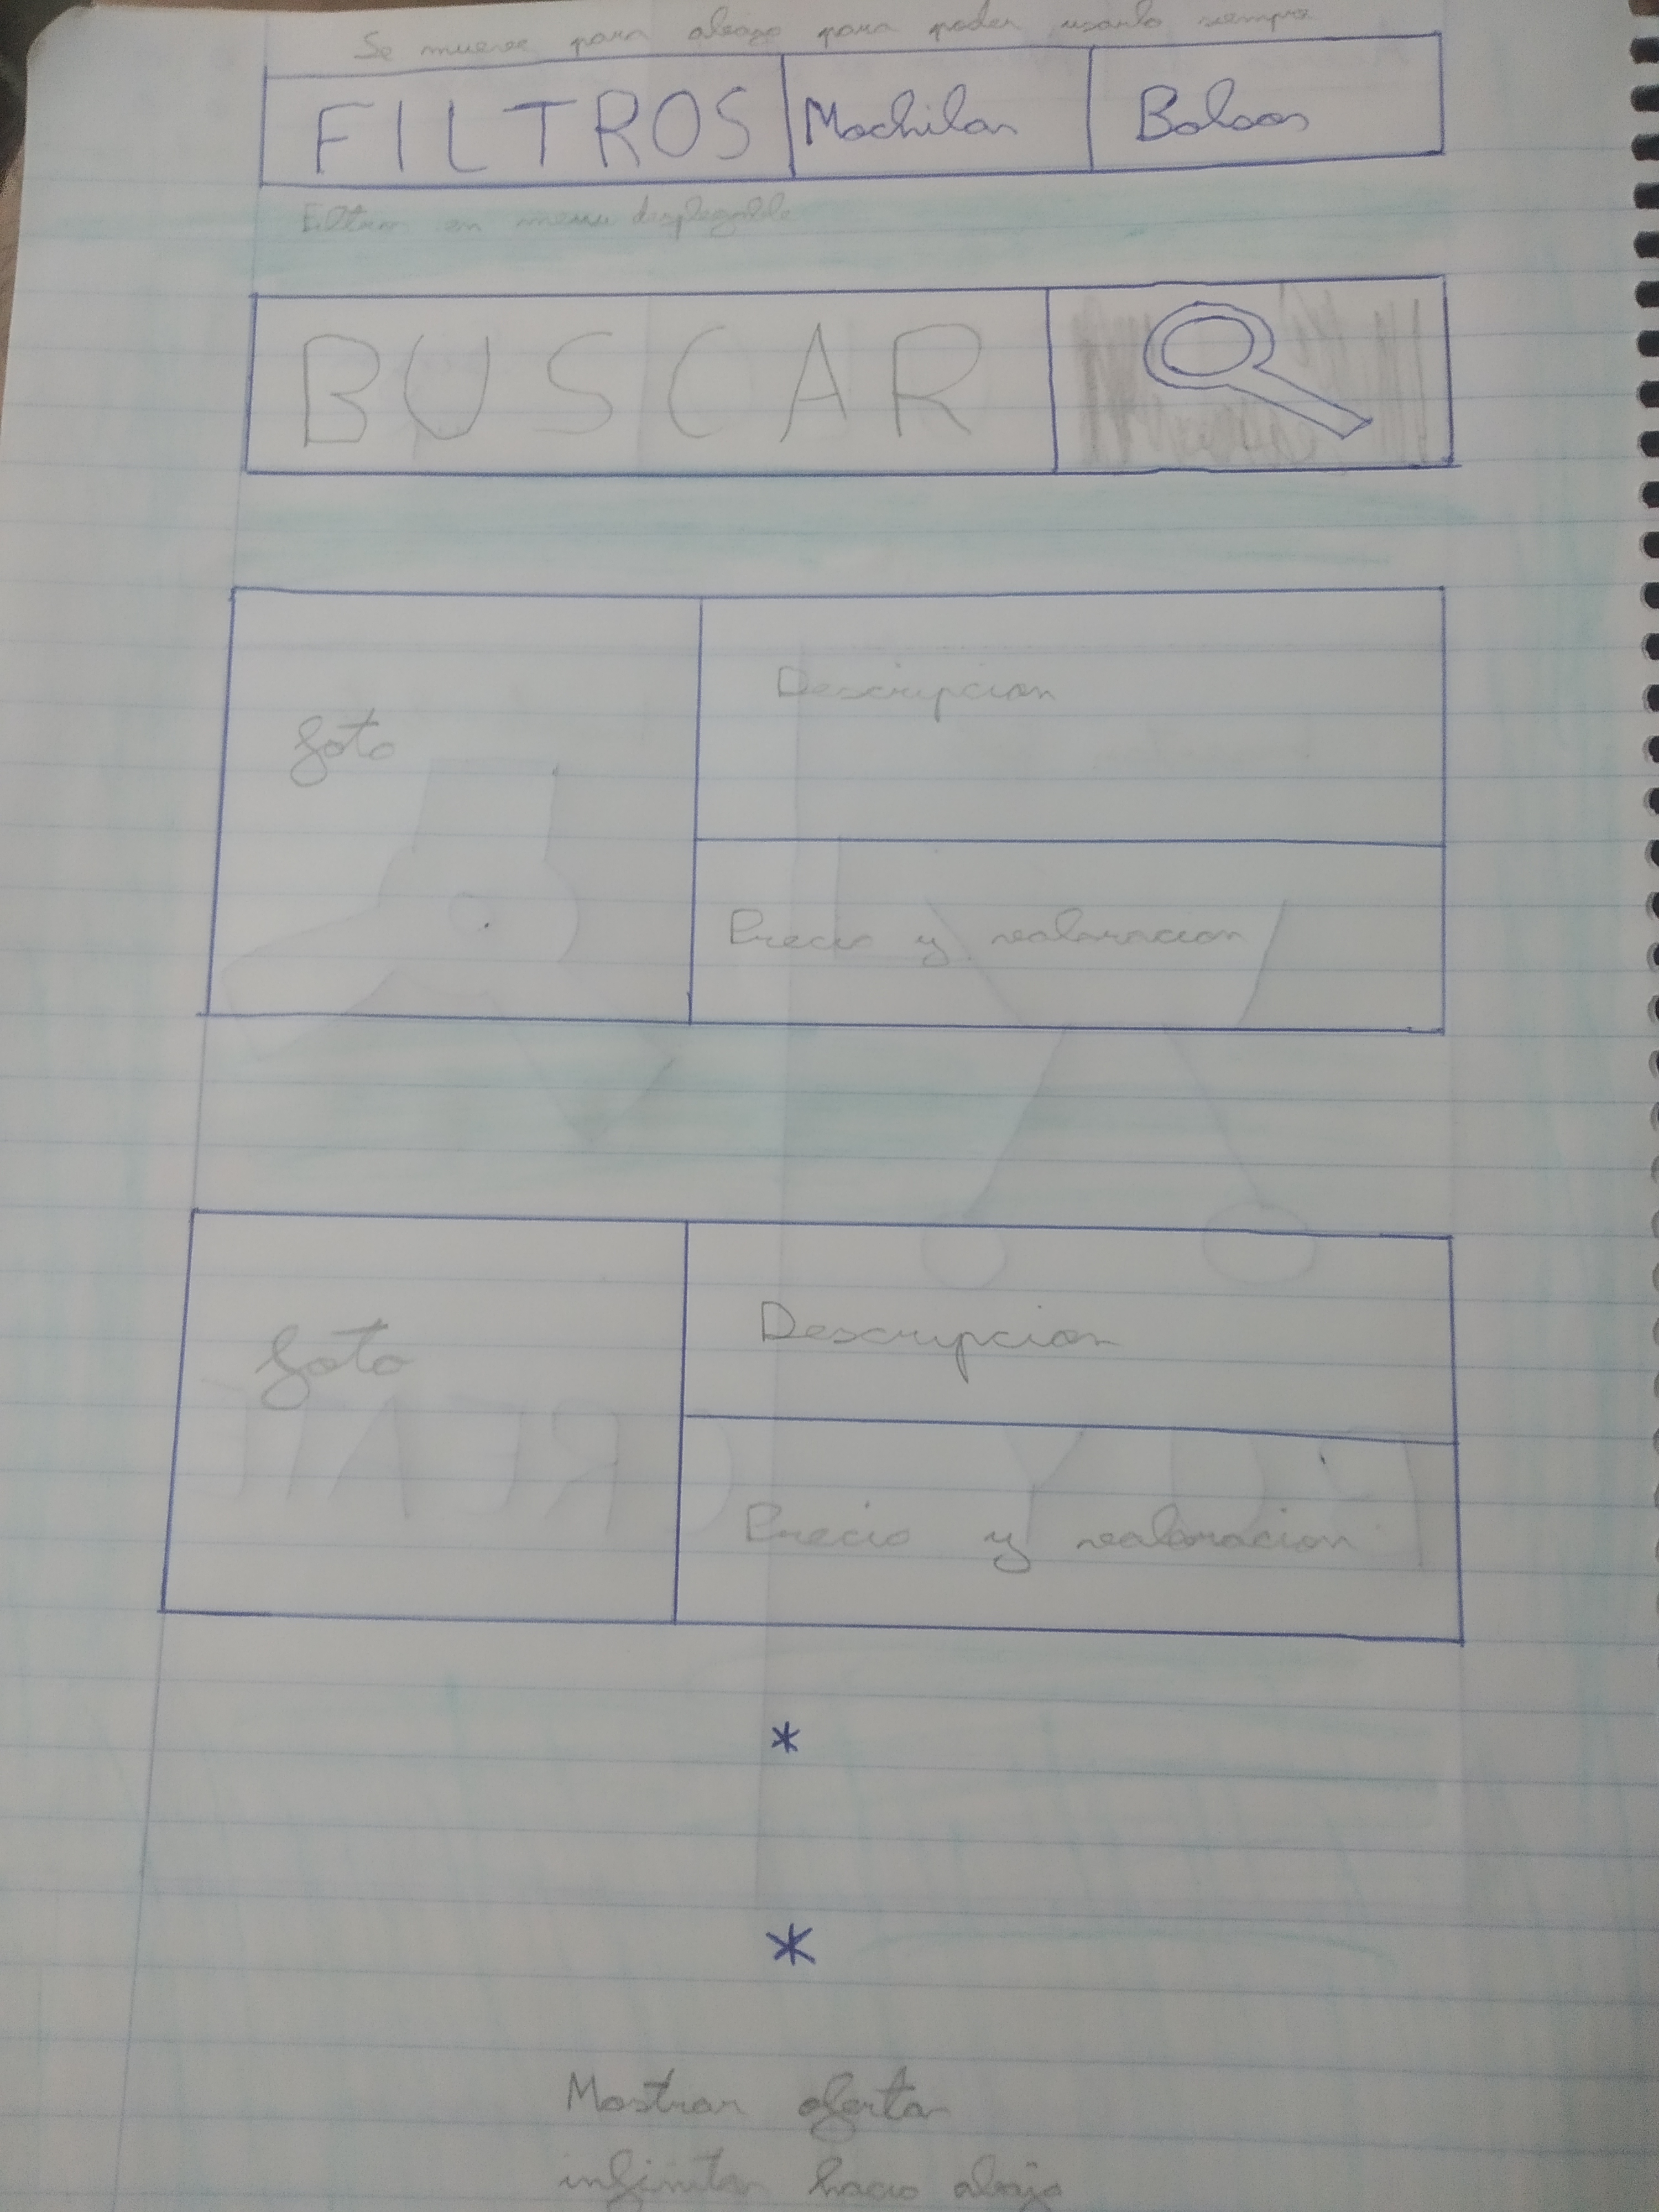 Se mueve para abajo para poder usarlo siempre
FILTROS Mochilas Bolsos
Filtros en menu desplegable
BUSCAR
foto
Descripcion
Precio y valoracion
foto
Descripcion
Precio y valoracion
*
*
Mostrar ofertas
infinitas hacia abajo